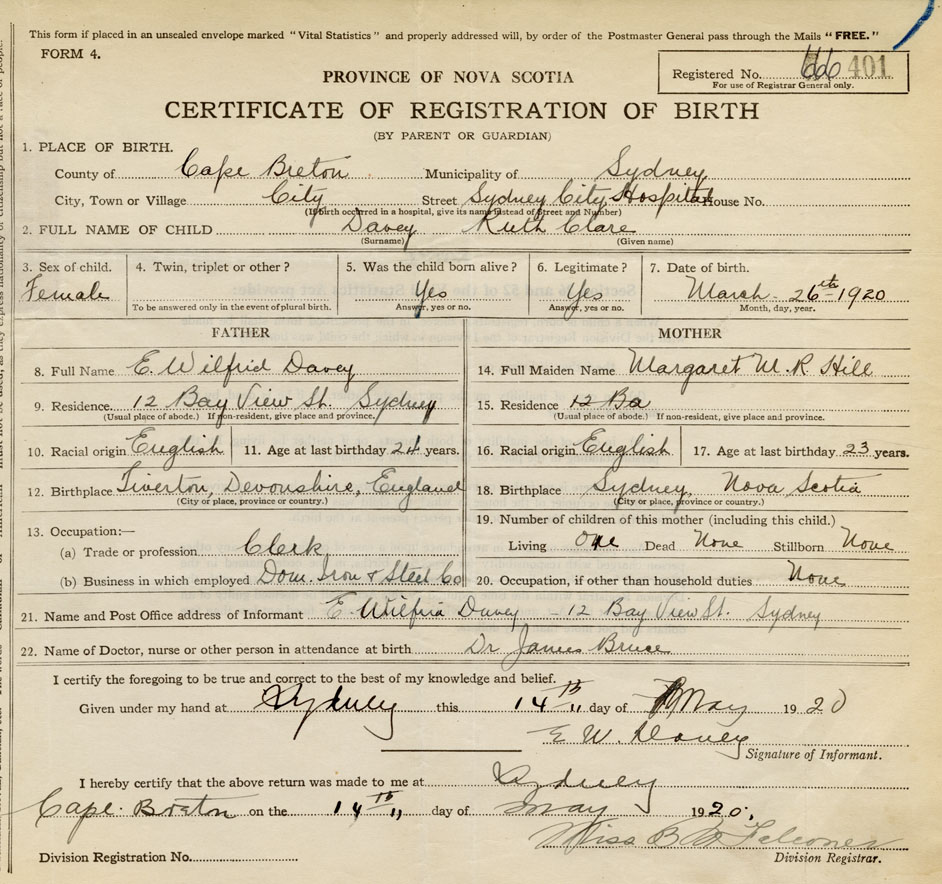 This form if placed in an unsealed envelope marked "Vital Statistics" and properly addressed will, by order of the Postmaster General pass through the Mails "FREE."
FORM 4.
Registered No. 66 401
For use of Registrar General only.
PROVINCE OF NOVA SCOTIA
CERTIFICATE OF REGISTRATION OF BIRTH
(BY PARENT OR GUARDIAN)
1. PLACE OF BIRTH.
County of Cape Breton Municipality of Sydney
City, Town or Village City Street Sydney City Hospital House No.
(If birth occurred in a hospital, give its name instead of Street and Number)
2. FULL NAME OF CHILD Davey Ruth Clare
(Surname) (Given name)
3. Sex of child. 4. Twin, triplet or other? 5. Was the child born alive? 6. Legitimate? 7. Date of birth.
Female Yes Yes March 26th 1920
To be answered only in the event of plural birth. Answer, yes or no. Answer, yes or no. Month, day, year.
FATHER MOTHER
8. Full Name E. Wilfrid Davey 14. Full Maiden Name Margaret M. R Hill
9. Residence. 12 Bay View St. Sydney 15. Residence 12 Ba
(Usual place of abode.) If non-resident, give place and province. (Usual place of abode.) If non-resident, give place and province.
10. Racial origin English 11. Age at last birthday 24 years. 16. Racial origin English 17. Age at last birthday 23 years.
12. Birthplace Tiverton, Devonshire, England 18. Birthplace Sydney, Nova Scotia
(City or place, province or country.) (City or place, province or country.)
13. Occupation:— 19. Number of children of this mother (including this child.)
(a) Trade or profession. Clerk Living One Dead None Stillborn None
(b) Business in which employed Dom. Iron & Steel Co 20. Occupation, if other than household duties None
21. Name and Post Office address of Informant E Wilfrid Davey - 12 Bay View St. Sydney
22. Name of Doctor, nurse or other person in attendance at birth Dr James Bruce
I certify the foregoing to be true and correct to the best of my knowledge and belief.
Given under my hand at Sydney this 14th day of May 1920
E. W. Davey
Signature of Informant.
I hereby certify that the above return was made to me at Sydney
Cape Breton on the 14th day of May 1920.
Miss B Falconer
Division Registration No. Division Registrar.